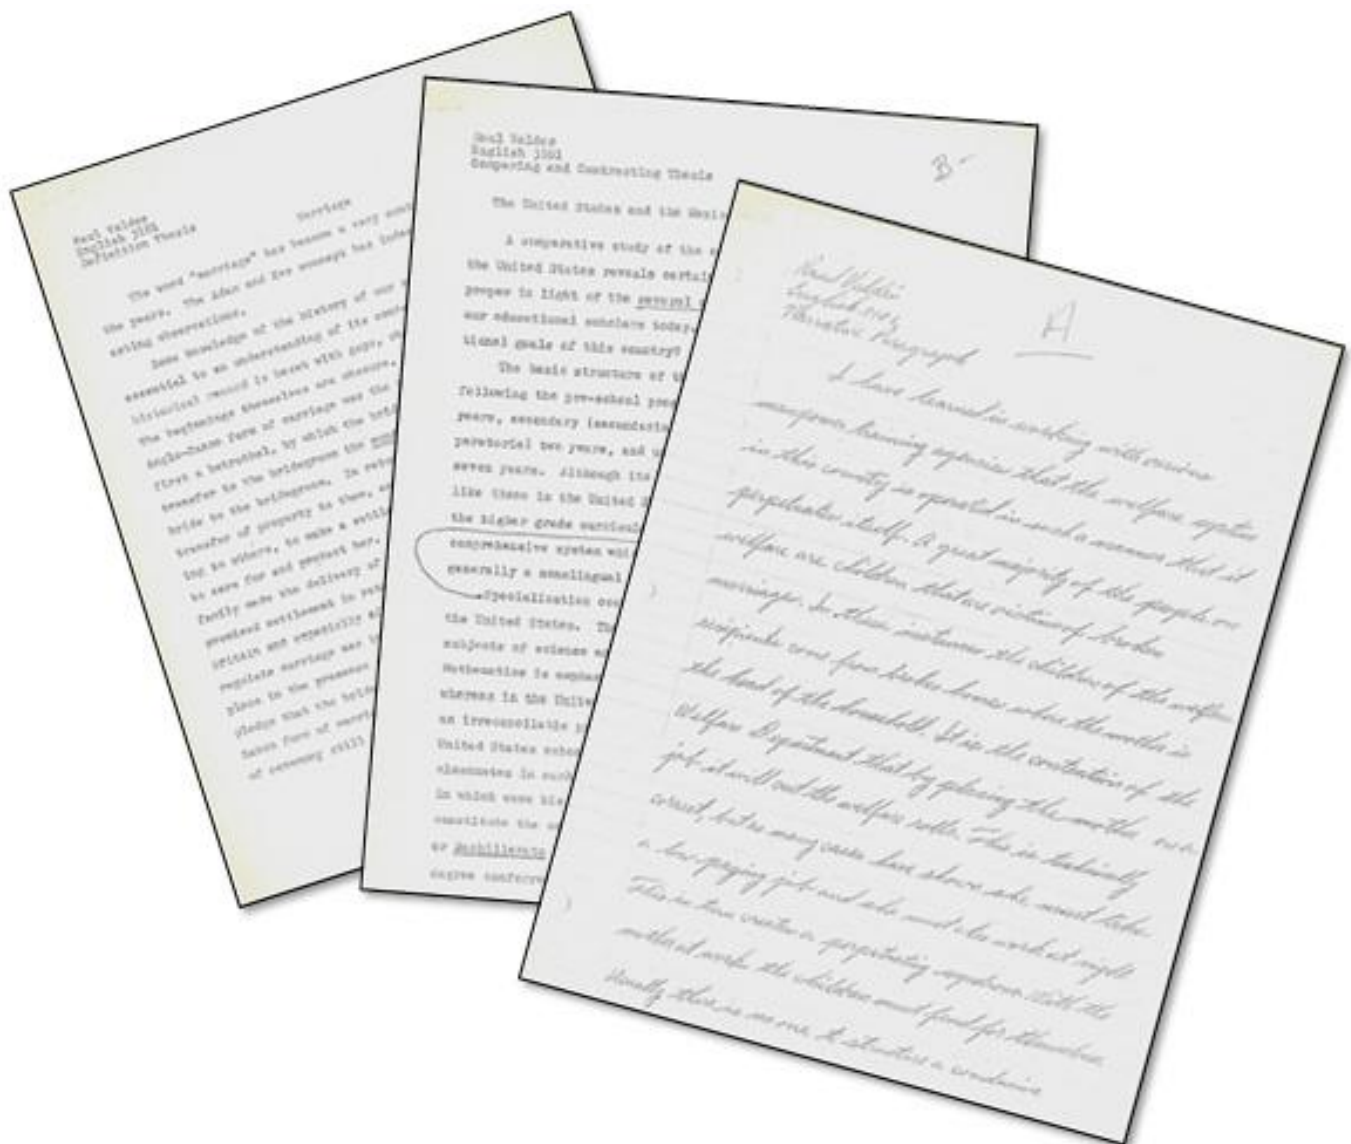 Raul Valdez
English 3101
Definition Thesis
Marriage
The word "marriage" has become a very
the years. The Adam and Eve concept has
esting observations.
Some knowledge of the history of our
essential to an understanding of its
historical record is beset with gaps,
The beginnings themselves are obscure.
Anglo-Saxon form of marriage was the
first a betrothal, by which the
transfer to the bridegroom the
bride to the bridegroom. In
transfer of property to them,
ing to others, to make a
to care for and protect her.
family made the delivery of
promised settlement in
Britain and especially
regulate marriage was
place in the presence
pledge that the
Saxon form of
of ceremony still
Raul Valdez
English 3101
Comparing and Contrasting Thesis
B-
The United States and the
A comparative study of the
the United States reveals
proper in light of the several
our educational scholars today.
tional goals of this country?
The basic structure of
following the pre-school
years, secondary
paratorial two years, and
seven years. Although its
like those in the United
the higher grade
comprehensive system
generally a monolingual
Specialization
the United States.
subjects of science
Mathematics is
whereas in the United
an irreconcilable
United States
elsewhere in such
in which
constitute the
or Bachillerato
degree
Raul Valdez
English
Narrative Paragraph
A
I have learned in working with various
manpower training agencies that the welfare system
in this country is operated in such a manner that it
perpetuates itself. A great majority of the people on
welfare are children that are victims of broken
marriages. In these instances the children of the welfare
recipients come from broken homes where the mother is
the head of the household. It is the contention of the
Welfare Department that by placing the mother on a
job it will cut the welfare rolls. This is technically
correct, but as many cases have shown, she must take
a low-paying job and she must also work at night.
This in turn creates a perpetuating syndrome. With the
mother at work the children must fend for themselves.
Usually there is no one to structure a